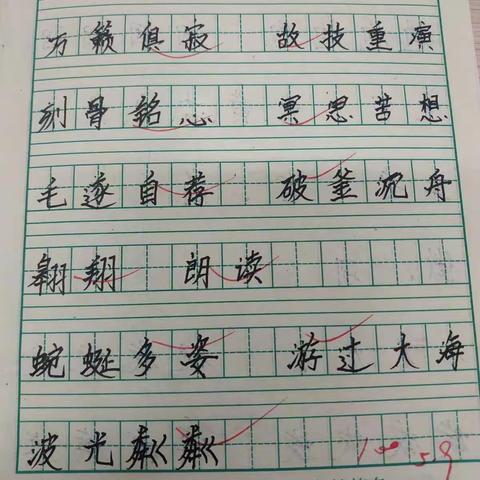 万籁俱寂 故技重演
刻骨铭心 冥思苦想
毛遂自荐 破釜沉舟
翱翔 朗读
蜿蜒多姿 游过大海
波光粼粼 100 5.9